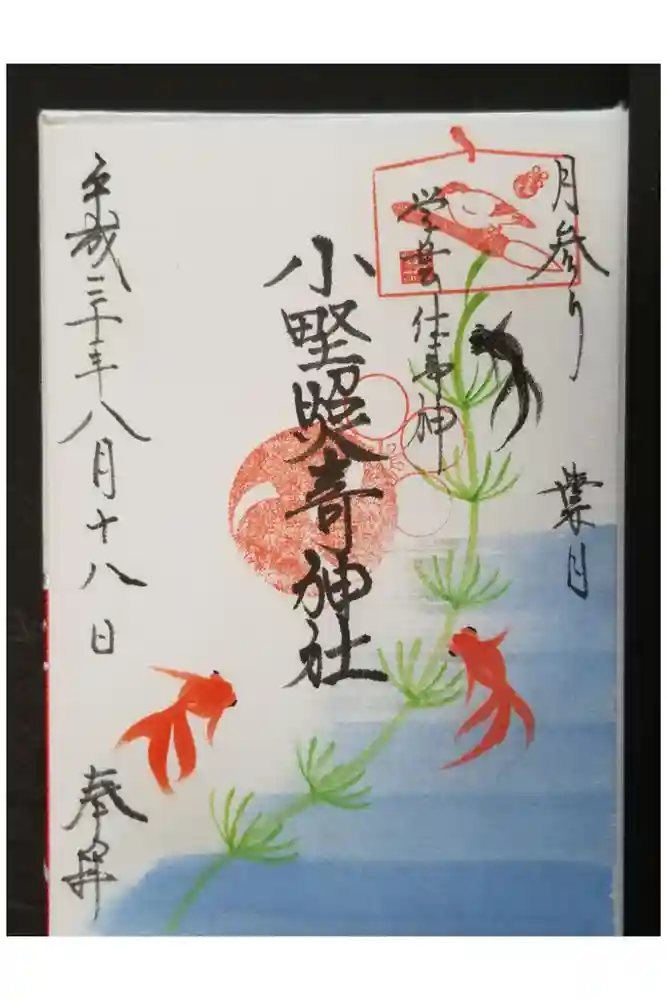 月参り
葉月
学芸仕事神
小野照嵜神社
平成三十年八月十八日
奉拝